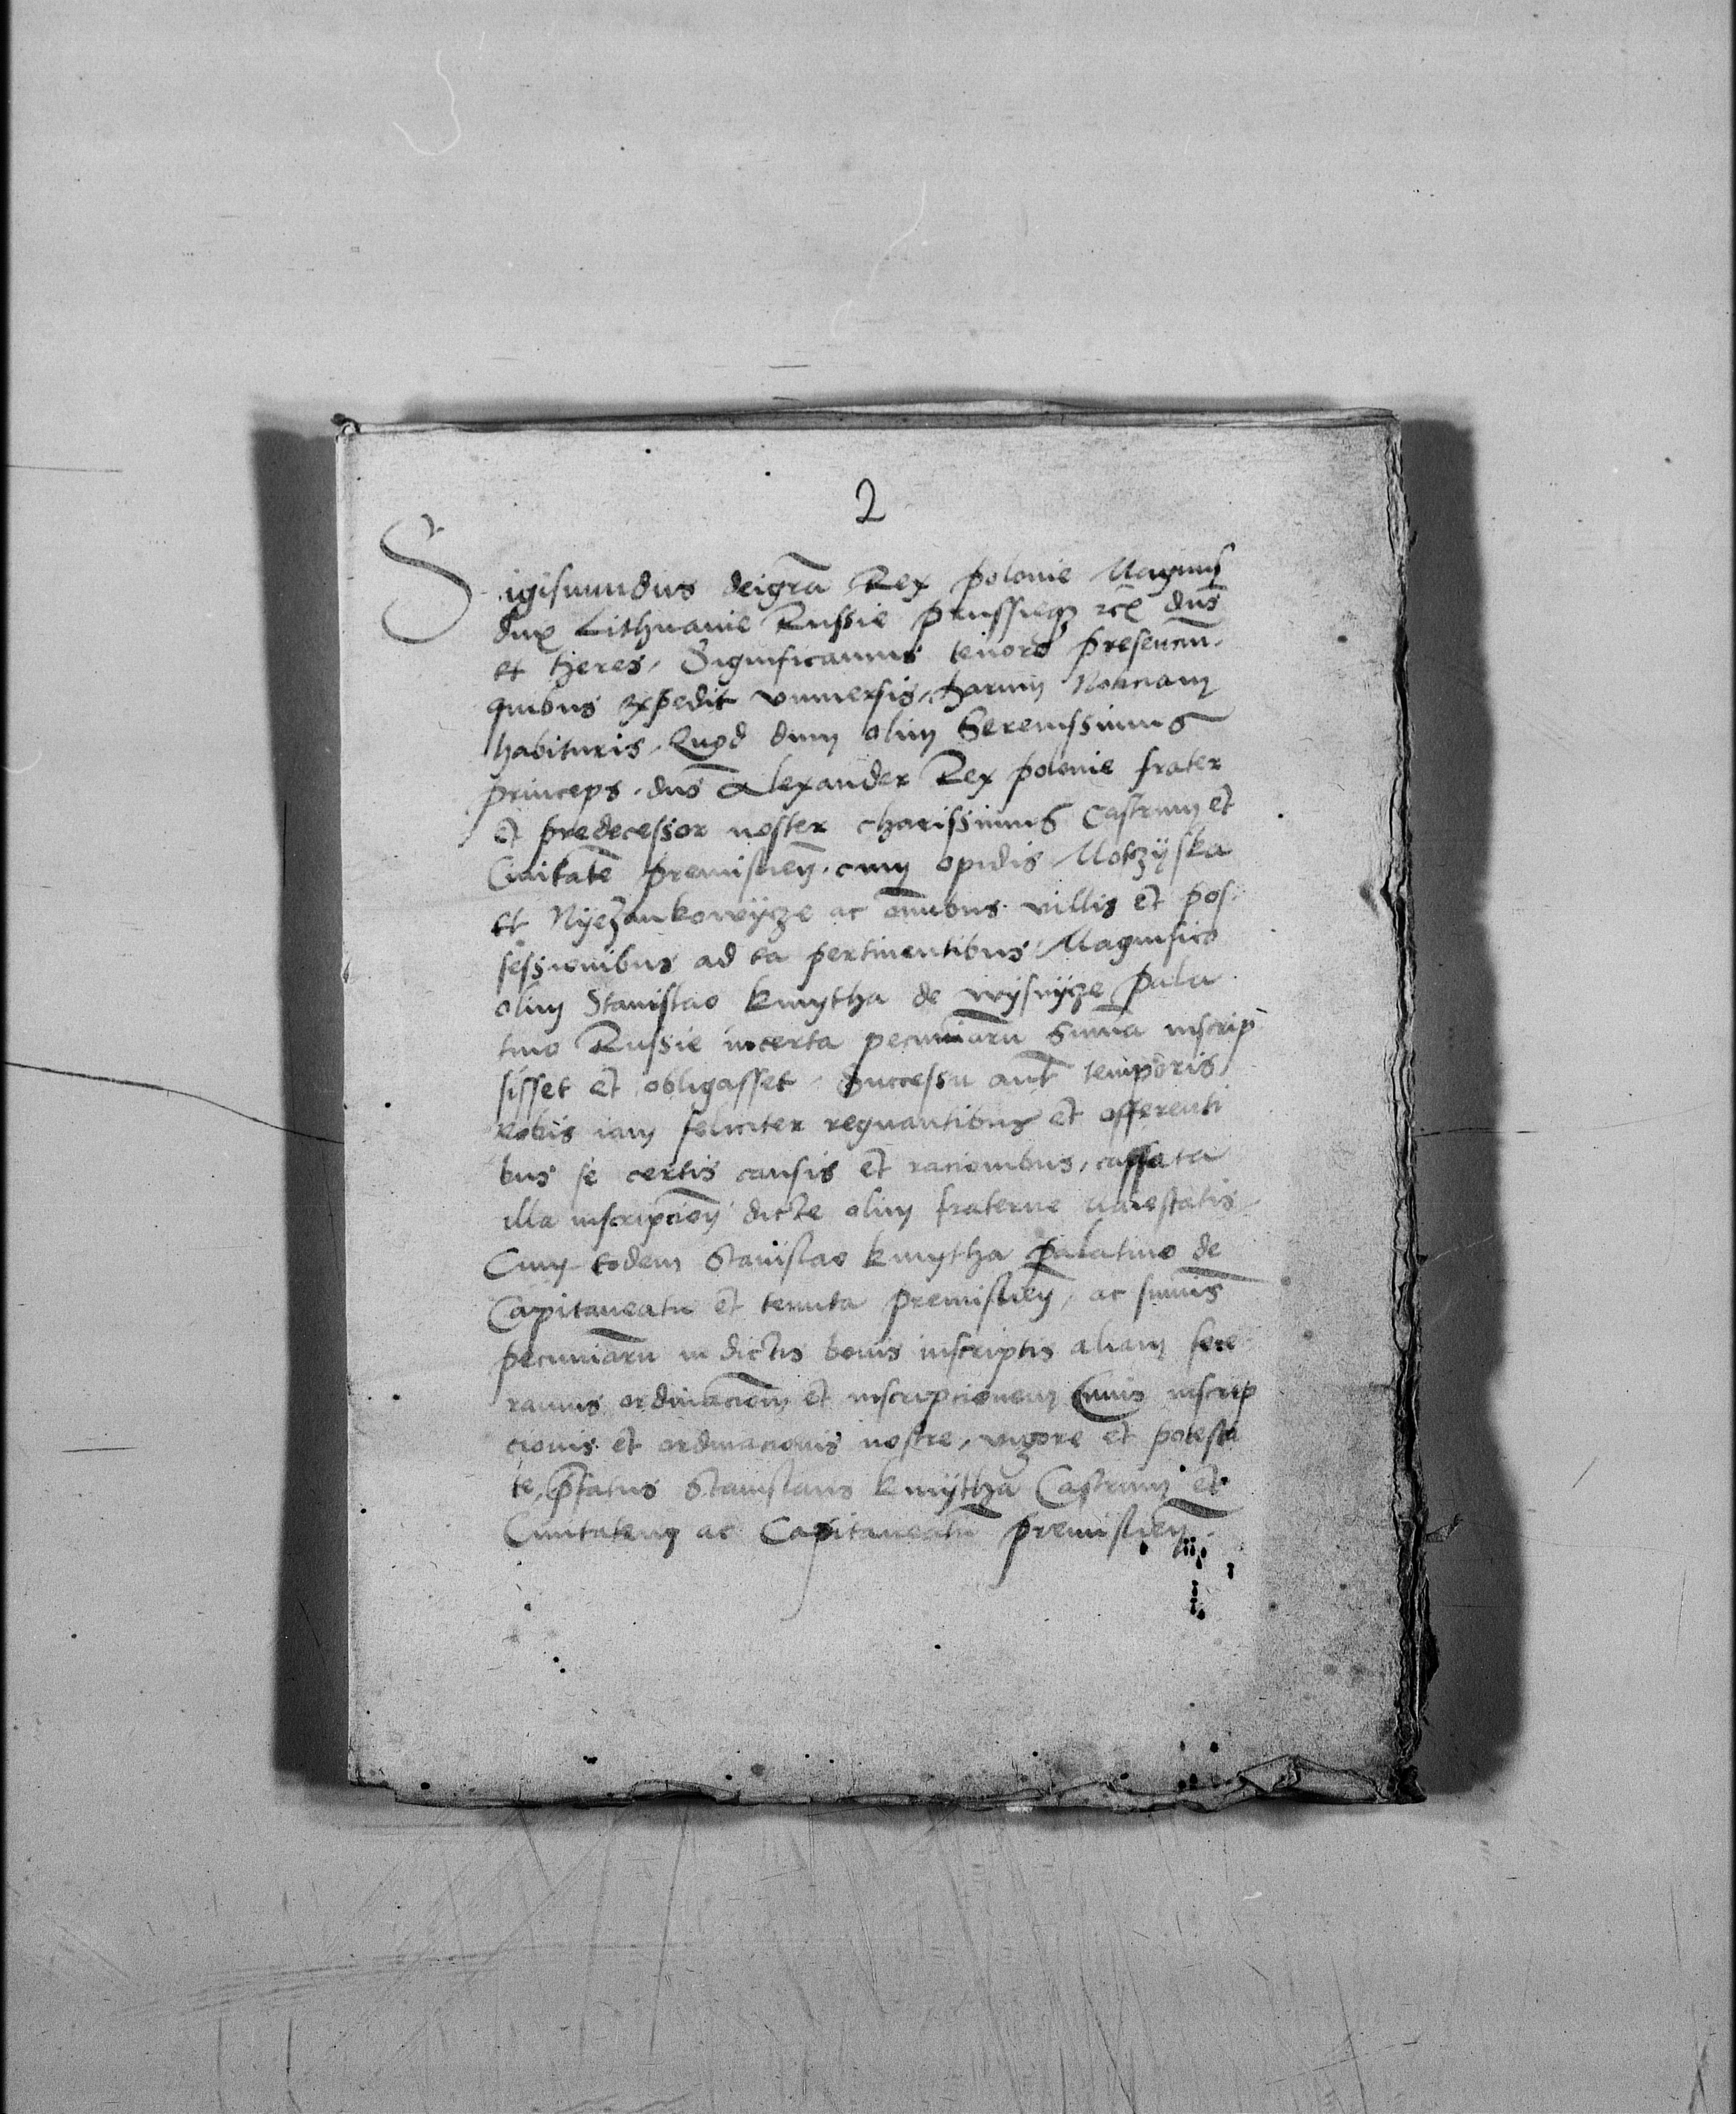 2
Sigismundus dei gr̄a Rex polonie Magnus
dux Lithuanie Russie prussieq3 rc̄ dn̄s
et heres, Significamus tenore presenciū.
quibus expedit vniuersis, harum Noticiam
habituris. Quod dum olim Serenissimus
princeps. dn̄s Alexander Rex polonie frater
et predecessor noster charissimus Castrum et
Ciuitatē premislien̄. cum opidis Mosczÿska
et Nyezankowÿcze ac om̄ibus villis et pos
sessionibus ad ea pertinentibus Magnifico
olim Stanislao kmytha de wÿsnÿcze pala
tino Russie incerta pecuniarū sum̄a inscrip
sisset et obligasset. Successu aut̄ temporis,
nobis iam feliciter regnantibus et offerenti
bus se certis causis et racionibus, cassata
illa inscripcion̄ dicte olim fraterne Maiestatis
Cum eodem Stanislao kmytha palatino de
Capitaneatu et tenuta premislien̄, ac sum̄is
pecuniarū in dictis bonis inscriptis aliam fece
ramus ordinacion̄ et inscripcionem Cuius inscrip
cionis et ordinacionis nostre, vigore et potesta
te, p̄fatus Stanislaus kmÿtha Castrum et
Ciuitatem ac Capitaneatū premislien̄.